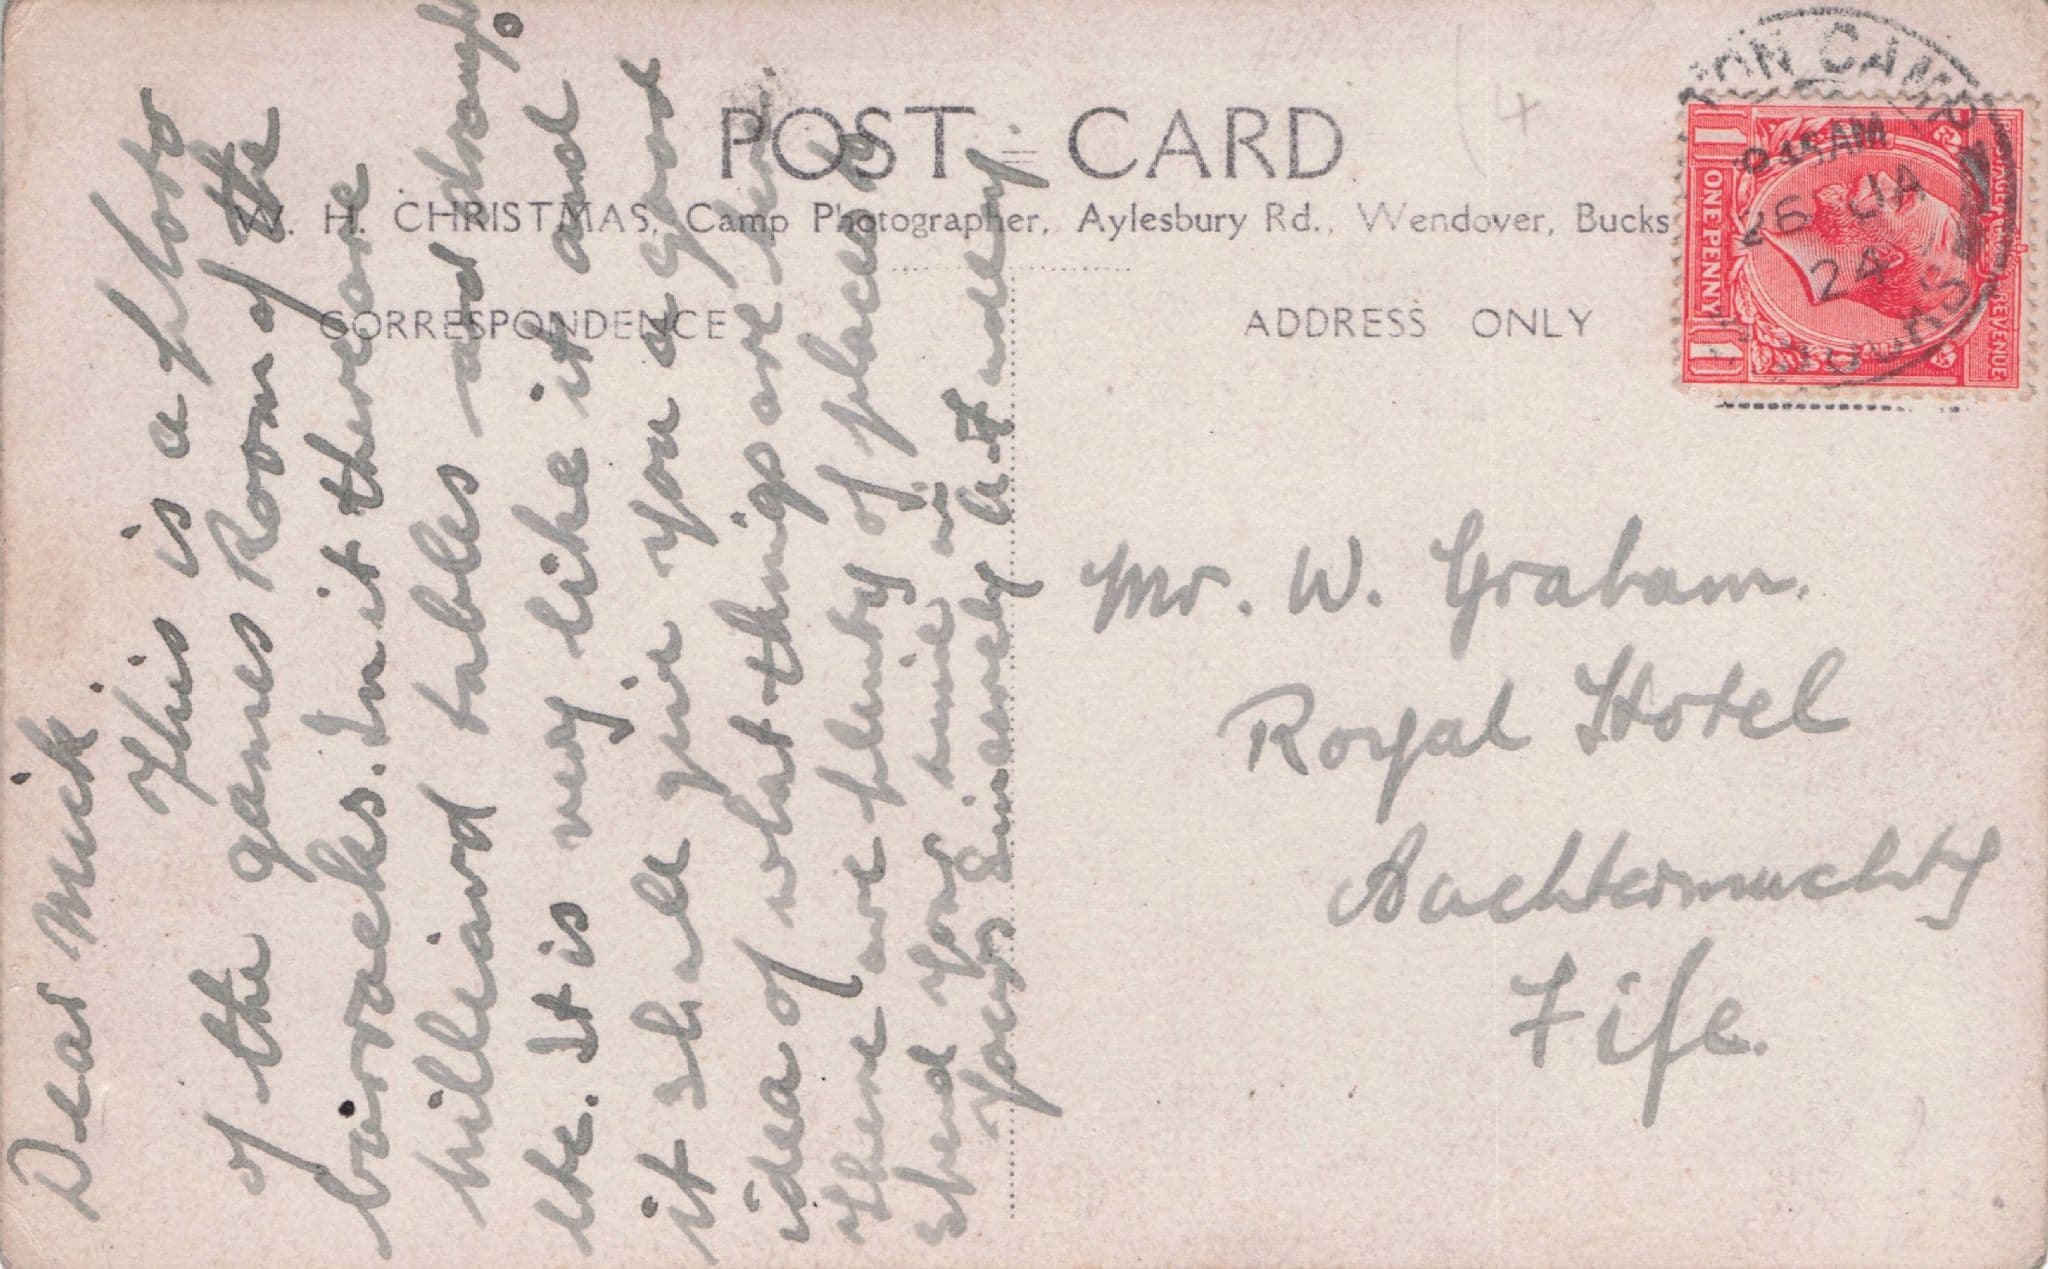 POST CARD
W. H. CHRISTMAS, Camp Photographer, Aylesbury Rd., Wendover, Bucks
CORRESPONDENCE
ADDRESS ONLY
Dear Mick
This is a photo
of the games Room of the
barracks. In it there are
billiard tables and
etc. It is very like it and
it shall give you a good
idea of what things are here.
There are plenty of places to
spend your time in
Yours Sincerely
Mr. W. Graham.
Royal Hotel
Auchtermuchty
Fife.
CAMP
AM
26 JA
24
POSTAGE REVENUE
1 ONE PENNY 1